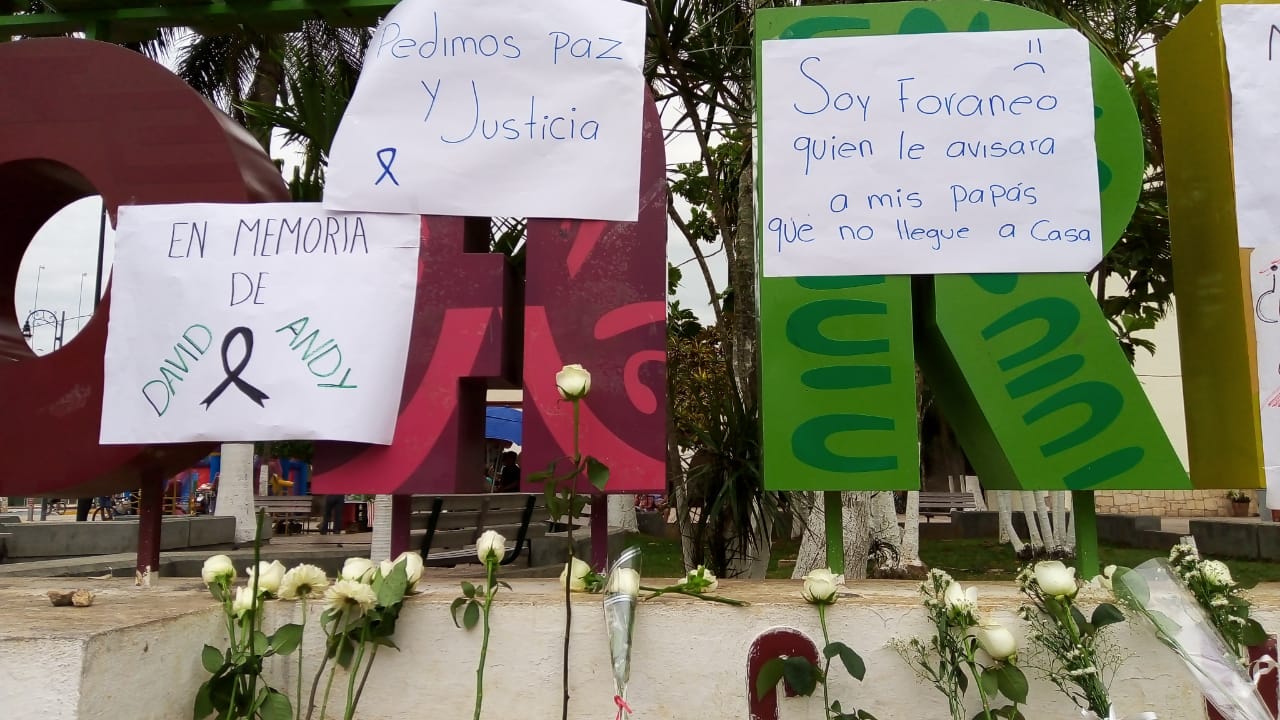 Pedimos paz
y Justicia
EN MEMORIA
DE
DAVID ANDY
Soy Foraneo
quien le avisara
a mis papás
que no llegue a Casa
R